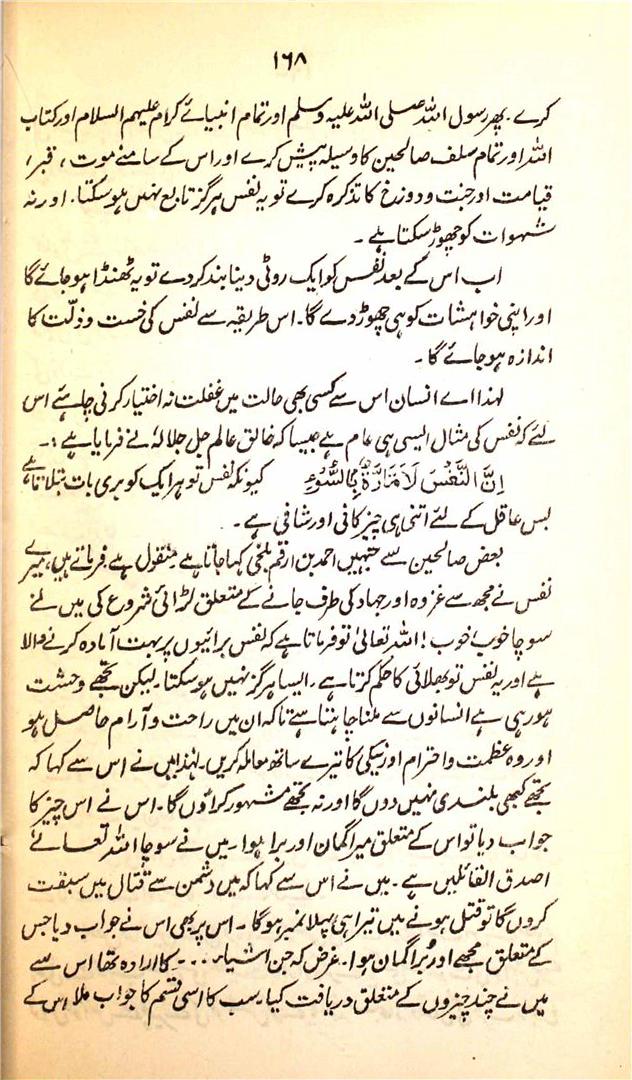 ۱۶۸
کرے۔ پھر رسول اللہ صلی اللہ علیہ وسلم اور تمام انبیائے کرام علیہم السلام اور کتاب
اللہ اور تمام سلف صالحین کا وسیلہ پیش کرے اور اس کے سامنے موت، قبر،
قیامت اور جنت و دوزخ کا تذکرہ کرے تو یہ نفس ہرگز تابع نہیں ہو سکتا۔ اور نہ
شہوات کو چھوڑ سکتا ہے۔
اب اس کے بعد نفس کو ایک روٹی دینا بند کر دے تو یہ ٹھنڈا ہو جائے گا
اور اپنی خواہشات کو ہی چھوڑ دے گا۔ اس طریقہ سے نفس کی خست و ذلّت کا
اندازہ ہو جائے گا۔
لہٰذا اے انسان اس سے کسی بھی حالت میں غفلت نہ اختیار کرنی چاہئے اس
لئے کہ نفس کی مثال ایسی ہی عام ہے جیسا کہ خالق عالم جل جلالہٗ نے فرمایا ہے :۔
اِنَّ النَّفْسَ لَاَمَّارَةٌ بِالسُّوْءِ کیونکہ نفس تو ہر ایک کو بری بات بتلاتا ہے
بس عاقل کے لئے اتنی ہی چیز کافی اور شافی ہے۔
بعض صالحین سے جنہیں احمد بن ارقم بلخی کہا جاتا ہے منقول ہے فرماتے ہیں، میرے
نفس نے مجھ سے غزوہ اور جہاد کی طرف جانے کے متعلق لڑائی شروع کی میں نے
سوچا خوب خوب! اللہ تعالیٰ تو فرماتا ہے کہ نفس برائیوں پر بہت آمادہ کرنے والا
ہے اور یہ نفس تو بھلائی کا حکم کرتا ہے، ایسا ہرگز نہیں ہو سکتا۔ لیکن تجھے وحشت
ہو رہی ہے انسانوں سے ملنا چاہتا ہے تاکہ ان میں راحت و آرام حاصل ہو
اور وہ عظمت و احترام اور نیکی کا تیرے ساتھ معاملہ کریں۔ لہٰذا میں نے اس سے کہا کہ
تجھے کبھی بلندی نہیں دوں گا اور نہ تجھے مشہور کراؤں گا۔ اس نے اس چیز کا
جواب دیا تو اس کے متعلق میرا گمان اور برا ہوا۔ میں نے سوچا اللہ تعالےٰ
اصدق القائلین ہے۔ میں نے اس سے کہا کہ میں دشمن سے قتال میں سبقت
کروں گا تو قتل ہونے میں تیرا ہی پہلا نمبر ہوگا۔ اس پر بھی اس نے جواب دیا جس
کے متعلق مجھے اور بُرا گمان ہوا۔ غرض کہ جن اشیاء ... کا ارادہ تھا اس سے
میں نے چند چیزوں کے متعلق دریافت کیا۔ سب کا اسی قسم کا جواب ملا اس کے